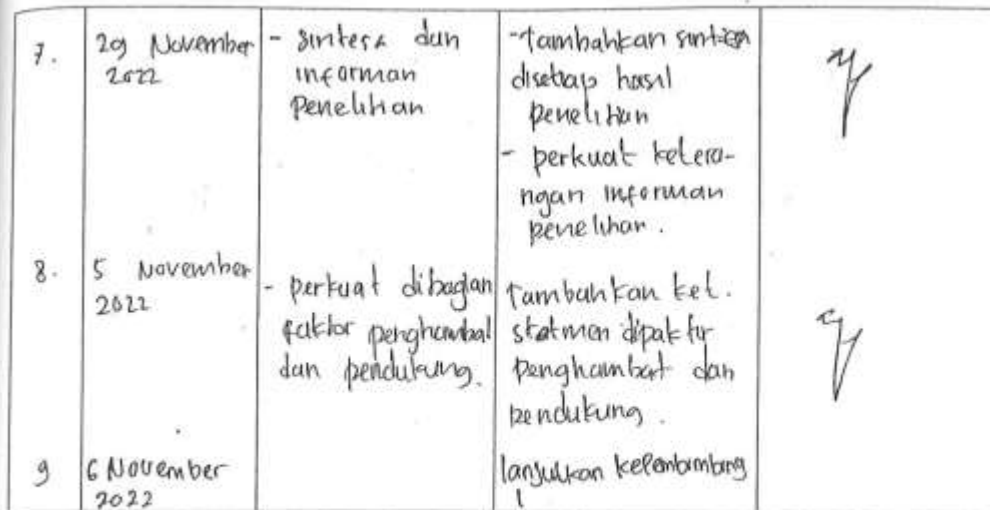 7.
29 November
2022
- sintesa dan
informan
penelitian
- tambahkan
disetiap hasil
penelitian
- perkuat ketera-
ngan informan
penelitian.
8.
5 November
2022
- perkuat dibagian
faktor penghambat
dan pendukung.
tambahkan ket.
statmen
penghambat dan
pendukung.
9
6 November
2022
lanjutkan kepembimbing
1